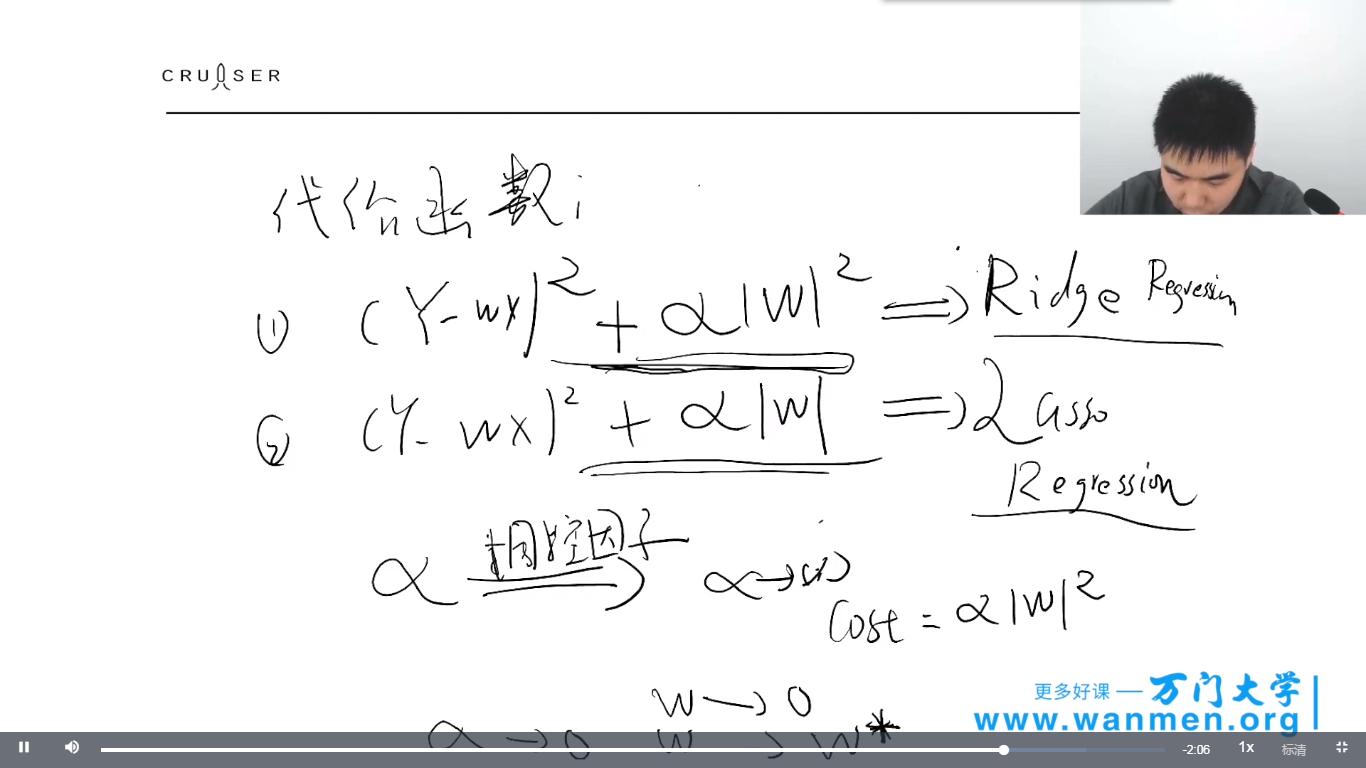 CRUISER
代价函数：
① (Y-wx)² + α|W|² ⇒ Ridge Regression
② (Y-wx)² + α|W| ⇒ Lasso
Regression
α 调控因子 ⇒ α→∞
Cost = α|W|²
W → 0
α → 0 W → W*
更多好课 — 万门大学
www.wanmen.org
-2:06 1x 标清